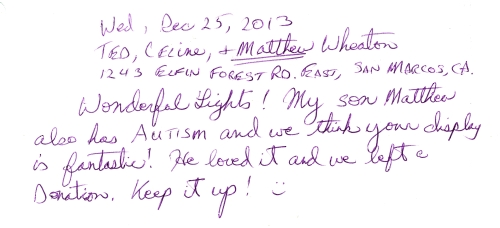 Wed, Dec 25, 2013
TED, CELINE, + Matthew Wheaton
1243 ELFIN FOREST RD. EAST, SAN MARCOS, CA.
Wonderful Lights! My son Matthew
also has AUTISM and we think your display
is fantastic! He loved it and we left a
Donation. Keep it up! :)